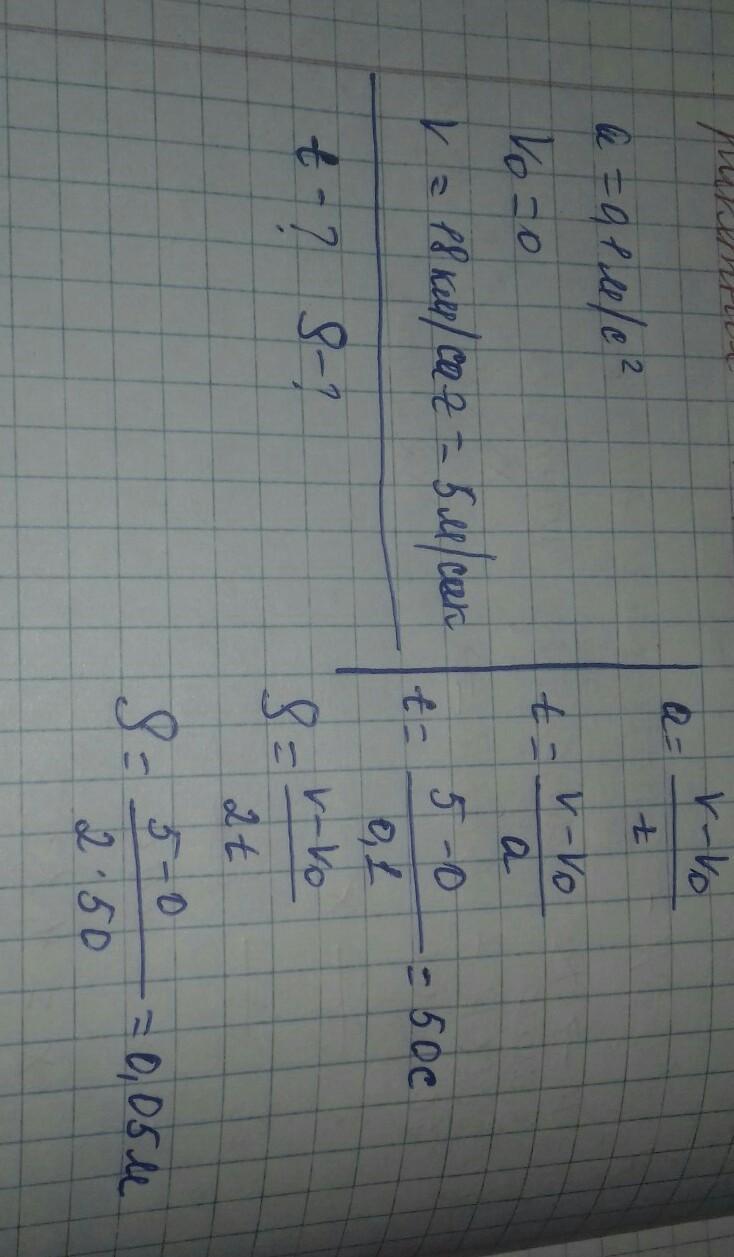 a = 0,1 м/с²
V₀ = 0
V = 18 км/саг = 5 м/сек
t - ? S - ?
a = (V - V₀) / t
t = (V - V₀) / a
t = (5 - 0) / 0,1 = 50с
S = (V - V₀) / 2t
S = (5 - 0) / (2 · 50) = 0,05м